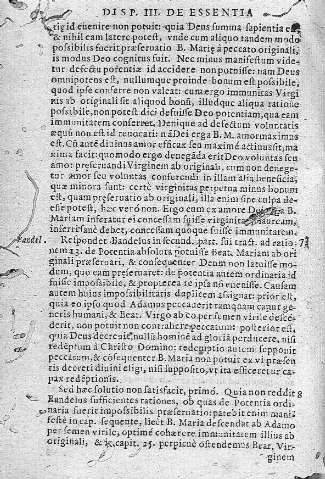 DISP. III. DE ESSENTIA
id euenire non potuit: quia Deus summa sapientia est
& nihil eam latere potest, vnde cum aliquo tandem modo
possibilis fuerit præseruatio B. Mariæ à peccato originali,
is modus Deo cognitus fuit. Nec minus manifestum vide-
tur defectu potentiæ id accidere non potuisse: nam Deus
omnipotens est, nullumque proinde bonum est possibile,
quod ipse conferre non valeat: cum ergo immunitas Virgi-
nis ab originali sit aliquod bonũ, illudque aliqua ratione
possibile, non potest dici defuisse Deo potentiam, qua eam
immunitatem conferret. Denique ad defectum voluntatis
æquè non est id reuocari: nã Dei erga B. M. amor maximus
est. Cũ autẽ diuinus amor efficax seu maximè actiuus sit, ma
xima facit: quo modo ergo denegãda erit Deo voluntas seu
amor præseruandi Virginem ab originali, cum non denege-
tur amor seu voluntas conferendi in illam alia beneficia,
quæ minora sunt: certè virginitas perpetua minus bonum
est, quam præseruatio ab originali, illa enim sine culpa de-
esse potest, hæc verò non. Ergo cum ex amore B.
Mariam inferatur ei concessam fuisse virginitatem,
inferri sanè debet, concessam quoque fuisse immunitatem.
Bandel. Respondet Bandelus in secund. part. sui tract. ad ratio- 7
nem 23. de Potentia absoluta potuisse Beat. Mariam ab ori
ginali præseruari, & consequenter Deum non latuisse mo-
dum, quo eam præseruaret: de potentia autem ordinaria id
fuisse impossibile, & proptereà re ipsa nõ euenisse. Causam
autem huius impossibilitatis duplicem assignat: prior est,
quia eo ipso quod Adamus peccauerit tamquam caput ge-
neris humani, & Beat. Virgo ab eo per semen virile desce-
derit, non potuit non contrahere peccatum: posterior est,
quia Deus decreuit nullũ hominẽ ad gloriã perducere, nisi
redẽptum à Christo Domino: redemptio autem supponit
peccatum, & cõsequenter B. Maria non potuit ex vi præsen
tis decreti diuini eligi, nisi supposito, vt ita esset peccati ca-
pax redẽptionis.
Sed hæc solutio non satisfacit, primò. Quia non reddit 8
Bandelus sufficientes rationes, ob quas de Potentia ordi-
naria fuerit impossibilis præseruatio: patebit enim mani-
festè in cap. sequente, licèt B. Maria descendat ab Adamo
per semen virile, optimè cohærere immunitatem illius ab
originali, & cap. 25. perspicuè ostendemus Beat. Vir-
ginem